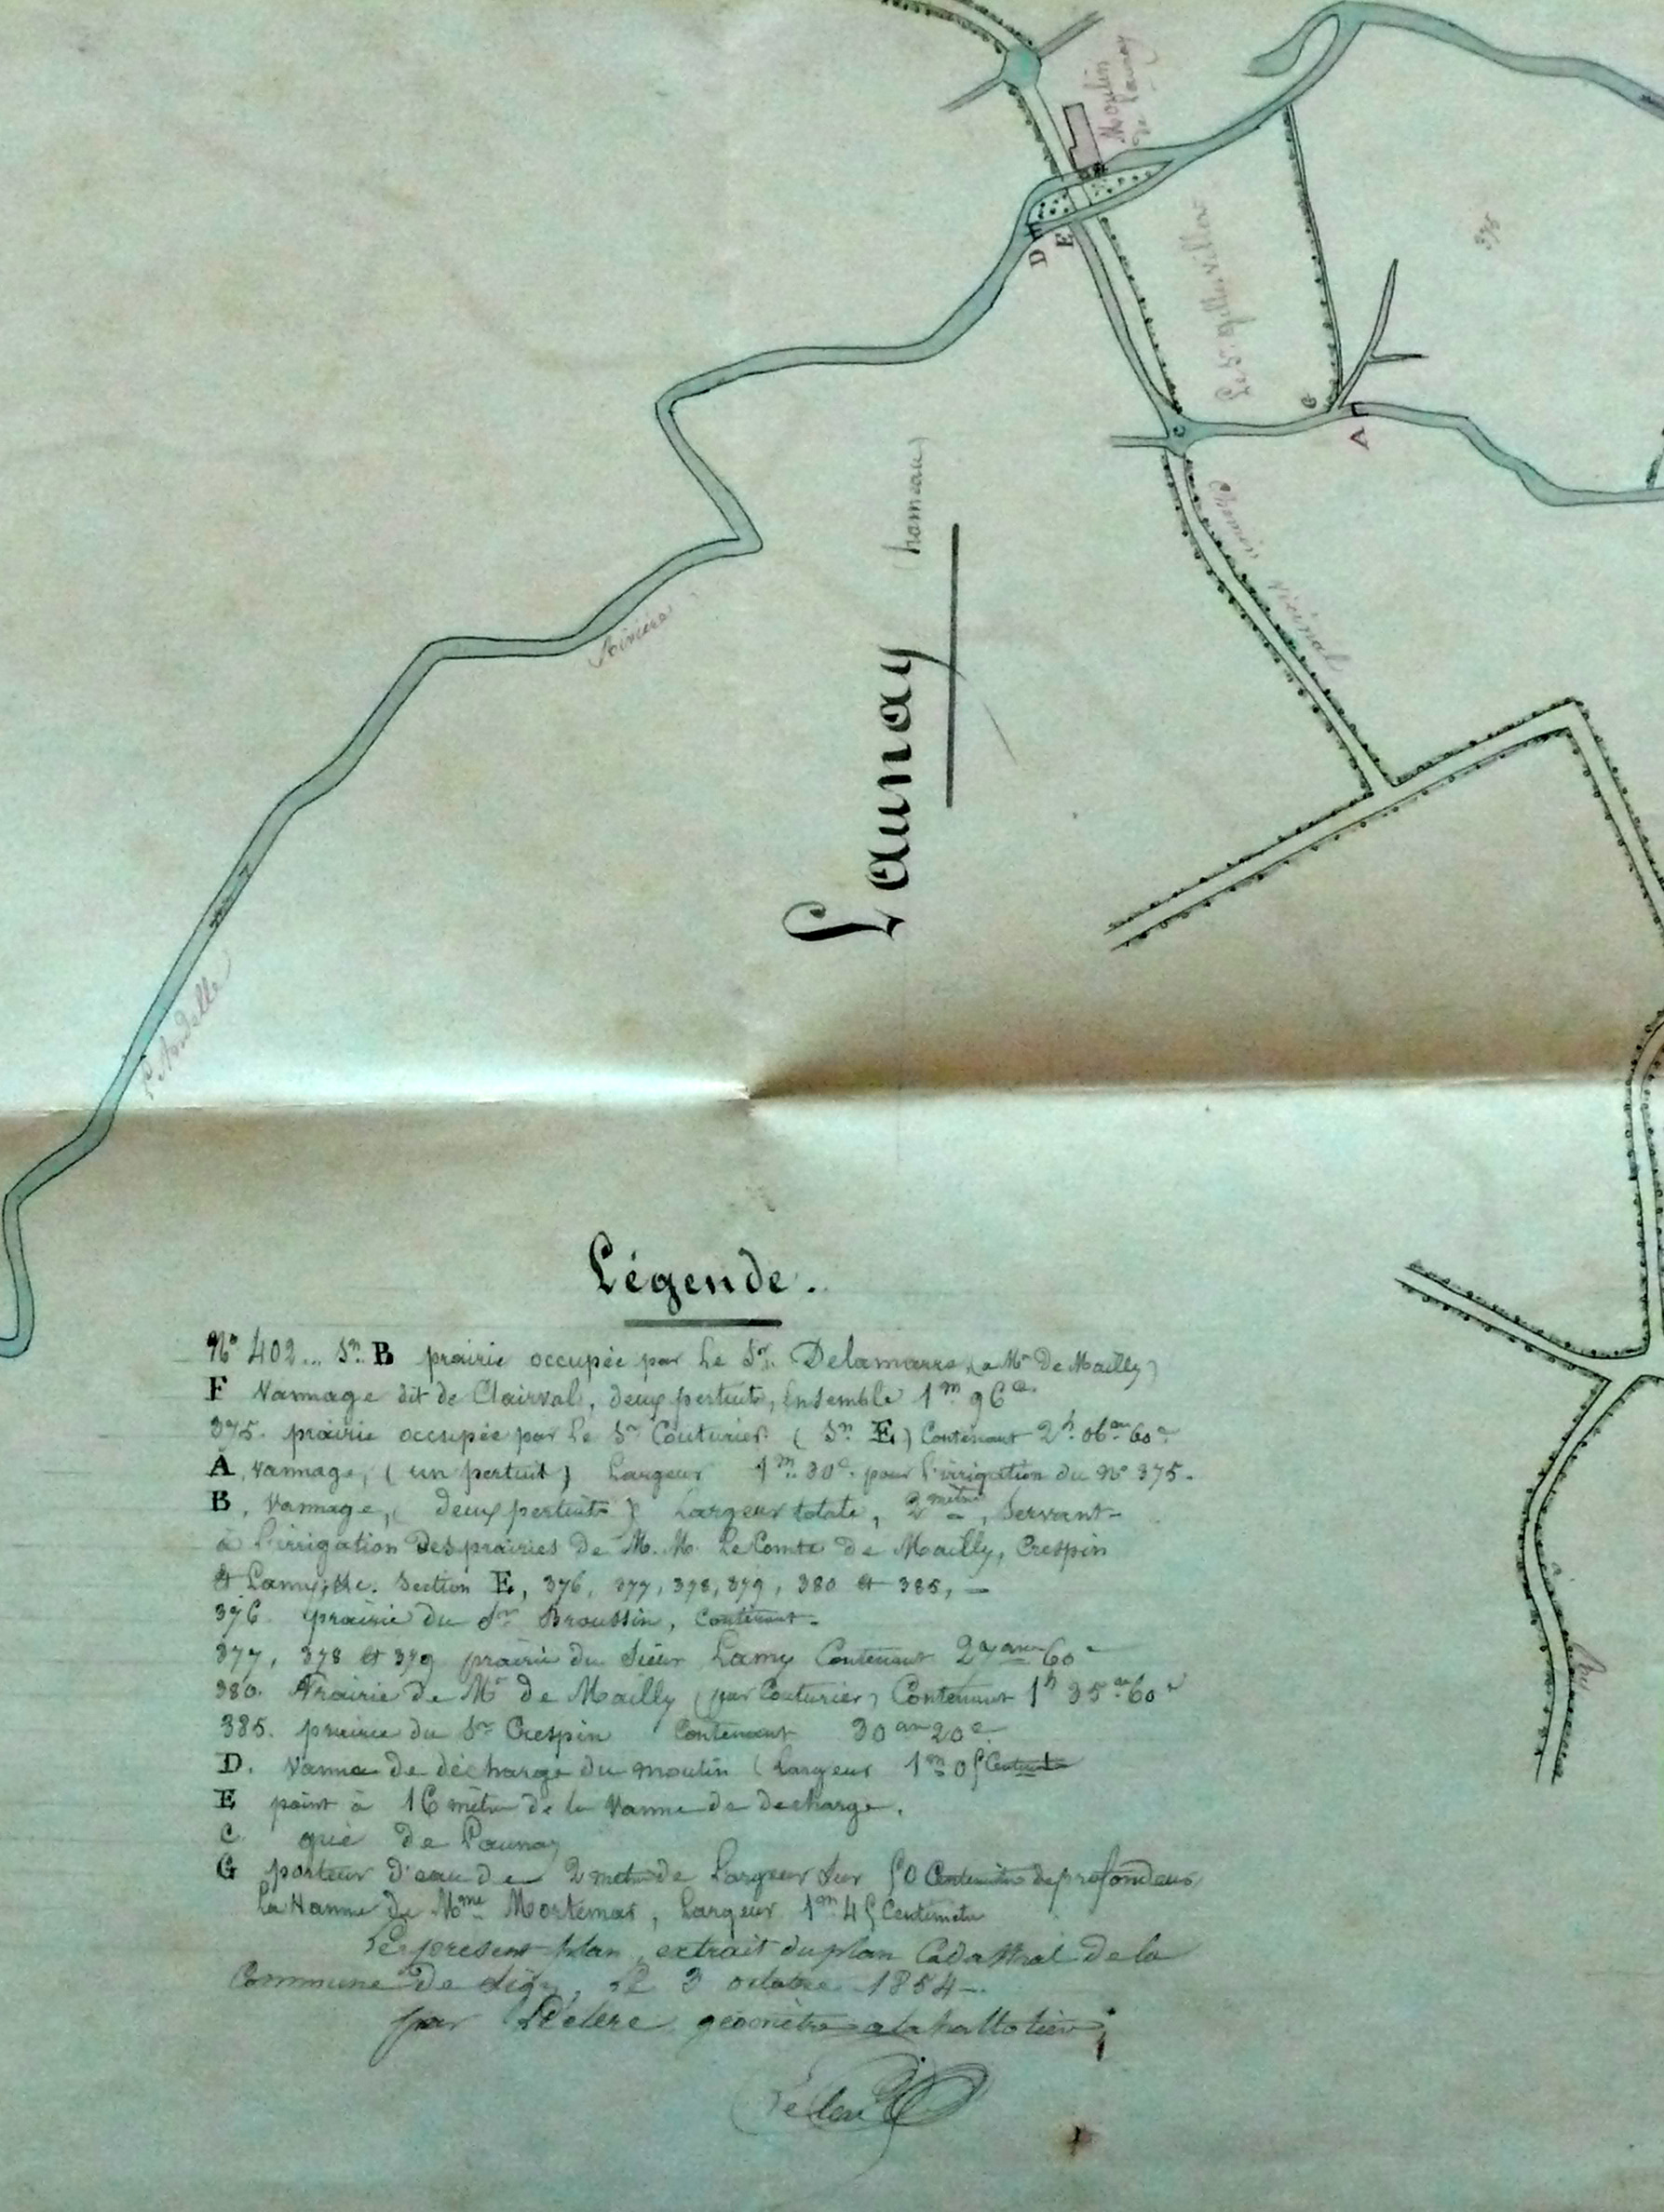 Moulin
de Launay
D
E
Le Sr. Gilleville
375
G
A
C
Chemin Vicinal
Launay (hameau)
Rivière
L'Andelle
Légende.
No 402... Son. B prairie occupée par le Sr. Delamarre (a Mr De Mailly)
F Vannage dit de Clairval, deux pertuits, Ensemble 1m 96c.
375. prairie occupée par le Sr Couturier (Son E) Contenant 2h 06ares 60c
A, vannage, (un pertuit) Largeur 1m. 30c. pour l'irrigation du No 375.
B, Vannage, (deux pertuits) Largeur totale, 2 mètres, Servant
à l'irrigation des prairies de M. M. Le Comte de Mailly, Crespin
et Lamy, &c. Section E, 376, 377, 378, 379, 380 et 385, —
376. prairie du Sr Broussin, Contenant-
377, 378 et 379 prairie du Sieur Lamy Contenant 27 ares 60c
380. Prairie de Mr de Mailly (par Couturier) Contenant 1h 35ares 60c
385. prairie du Sr Crespin Contenant 30 ares 20c
D. Vanne de décharge du moulin (Largeur 1m 05 Centimt
E point à 16 mètres de la Vanne de décharge.
C gué de Launay
G porteur d'eau de 2 mètres de Largeur Sur 50 Centimètres de profondeur
La Vanne de Mme Mortemar, Largeur 1m 45 Centimètres
Le présent plan, extrait du plan Cadastral de la
Commune de Sigy, le 3 octobre 1854.
par Leclerc géomètre a la hallotière
Leclerc